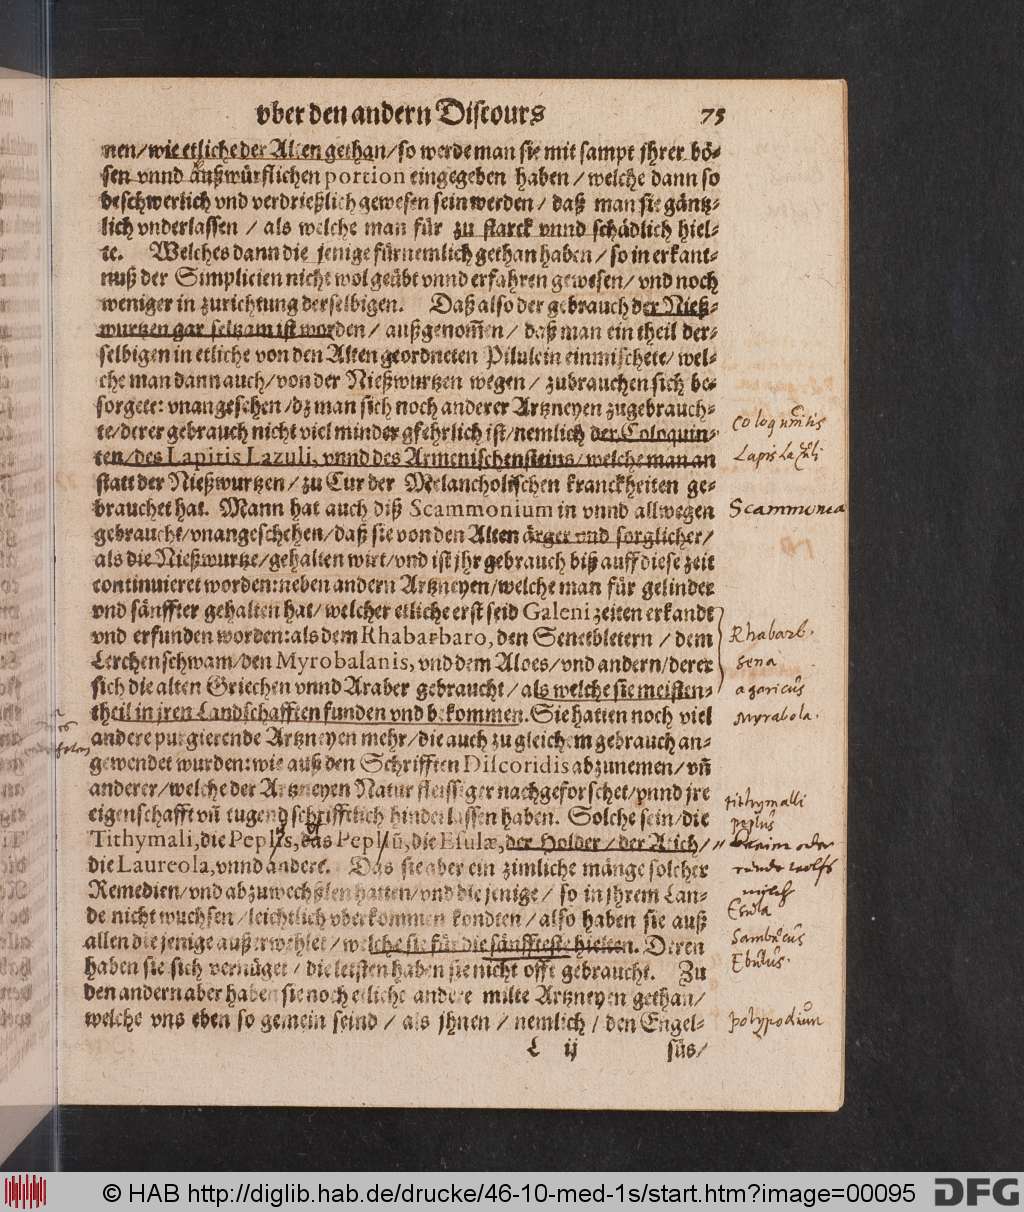 vber den andern Discours 75
nen/wie etliche der Alten gethan/so werde man sie mit sampt jhrer bö-
sen vnnd außwürfflichen portion eingegeben haben/welche dann so
beschwerlich vnd verdrießlich gewesen sein werden/ daß man sie gäntz-
lich vnderlassen / als welche man für zu starck vnnd schädlich hiel-
te. Welches dann die jenige fürnemlich gethan haben/ so in erkant-
nuß der Simplicien nicht wol geübt vnnd erfahren gewesen/ vnd noch
weniger in zurichtung derselbigen. Daß also der gebrauch der Nieß-
wurtzen gar seltzam ist worden/ außgenom̃en/ daß man ein theil der-
selbigen in etliche von den Alten geordneten Pilulein einmischete/ wel-
che man dann auch/von der Nießwurtzen wegen/ zubrauchen sich be-
sorgete: vnangesehen/dz man sich noch anderer Artzneyen zugebrauch-
te/derer gebrauch nicht viel minder gfehrlich ist/nemlich der Coloquin-
ten/des Lapitis Lazuli, vnnd des Armenischensteins/welche man an
statt der Nießwurtzen/ zu Cur der Melancholischen kranckheiten ge-
brauchet hat. Mann hat auch diß Scammonium in vnnd allwegen
gebraucht/vnangeschehen/daß sie von den Alten ärger vnd sorglicher/
als die Nießwurtze/gehalten wirt/vnd ist jhr gebrauch biß auff diese zeit
continuieret worden:neben andern Artzneyen/welche man für gelinder
vnd sänffter gehalten hat/ welcher etliche erst seid Galeni zeiten erkandt
vnd erfunden worden:als dem Rhabarbaro, den Senetbletern / dem
Lerchenschwam/den Myrobalanis, vnd dem Aloes/vnd andern/derer
sich die alten Griechen vnnd Araber gebraucht/ als welche sie meisten-
theil in jren Landschafften funden vnd bekommen. Sie hatten noch viel
andere purgierende Artzneyen mehr/die auch zu gleichem gebrauch an-
gewendet wurden:wie auß den Schrifften Discoridis abzunemen/ vñ
anderer/welche der Artzneyen Natur fleissiger nachgeforschet/vnnd jre
eigenschafft vñ tugend schrifftlich hinderlassen haben. Solche sein/die
Tithymali, die Peplus, das Peplũ, die Esulæ, der Holder/ der Attich/
die Laureola, vnnd andere. Das sie aber ein zimliche mänge solcher
Remedien/vnd abzuwechßlen hatten/vnd die jenige/ so in jhrem Lan-
de nicht wuchsen/ leichtlich vberkommen kondten/ also haben sie auß
allen die jenige außerwehlet/ welche sie für die sänffteste hielten. Deren
haben sie sich vernüget/ die letsten haben sie nicht offt gebraucht. Zu
den andern aber haben sie noch etliche andere milte Artzneyen gethan/
welche vns eben so gemein seind / als jhnen / nemlich / den Engel-
L ij süs/
Lapis Lazuli
Scammonea
Rhabarb.
Sena
agaricus
Myrabola.
tithymalli
peplus
runde wolfs
milch
Esula
Sambucus
Ebulus.
polypodium
© HAB http://diglib.hab.de/drucke/46-10-med-1s/start.htm?image=00095 DFG